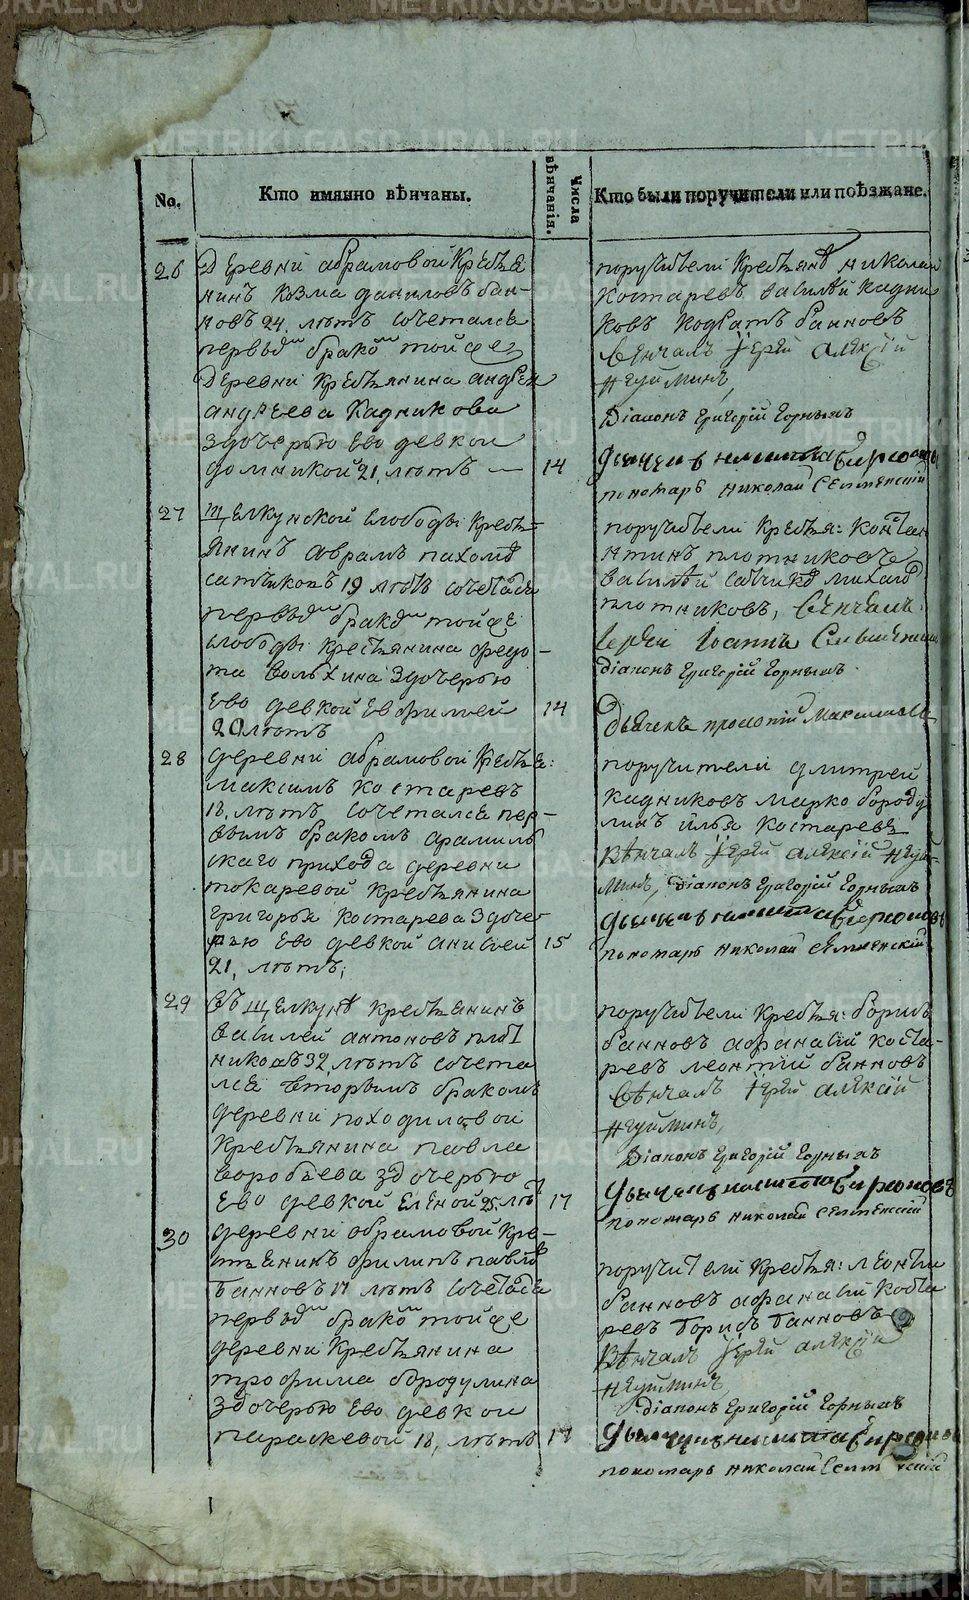 No.
Кто имянно вѣнчаны.
Числа
вѣнчанія.
Кто были поручители или поѣзжане.
26
Деревни абрамовой Кресть
нинъ Козма даниловъ бан-
новъ 24. лѣтъ сочетался
первым бракомъ тойже
Деревни крестьянина андрея
андреева Кадникова
здочерью ево девкой
домникой 21, лѣтъ —
14
поручители Крестьяне николай
Костаревъ василей Кадни
ковъ Кодратъ банновъ
Вѣнчалъ Іерей алексій
Неуйминъ,
Діаконъ Григорій Горныхъ
дьячекъ никита
пономарь николай
27
щелкунской слободы Кресть-
янинъ аврамъ пахомов
сатчиковъ 19 лѣтъ сочетался
первым браком тойже
слободы крестьянина федо-
та Здочерью
ево девкой Евфимией
20 лѣтъ
14
поручители Кресья: Констан
нтинъ плотниковъ
василей михайло
плотниковъ, Вѣнчалъ
Іерей Іоаннъ
діаконъ Григорій Горныхъ.
Дьячекъ прокопій
28
деревни абрамовой Крестья:
максимъ костаревъ
18, лѣтъ сочетался пер-
вымъ бракомъ арамиль
скаго прихода деревни
токаревой Крестьянина
григорья костарева Здоче-
рью ево девкой анисьей
21, лѣтъ;
15
поручители дмитрей
кадниковъ марко бороду
линъ илья костаревъ
Вѣнчалъ Іерей алексій Неуй-
минъ, діаконъ Григорій Горныхъ
дьячекъ никита
пономарь николай
29
Въ щелкунѣ крестьянинъ
василей антоновъ плот
никовъ 32 лѣтъ сочета
лся вторымъ бракомъ
деревни походиловой
Крестьянина павла
воробьева здочерью
ево девкой Еленой 25. лѣт
17
поручители Крестья: борисъ
банновъ афанасій коста-
ревъ леонтій банновъ
Вѣнчалъ Іерей алексій
Неуйминъ,
Діаконъ Григорій Горныхъ
дьячекъ никита
пономарь николай
30
деревни абрамовой кре-
стьянинъ филипъ павлов
банновъ 17 лѣтъ сочетался
первым браком тойже
деревни Крестьянина
трофима бородулина
Здочерью ево девкой
параскевой 18, лѣтъ
17
поручители Крестья: леонтий
банновъ афанасий коста
ревъ борисъ банновъ
Вѣнчалъ Іерей алексій
Неуйминъ
діаконъ Григорій Горныхъ
дьячекъ никита
пономарь николай
METRIKI.GASU-URAL.RU